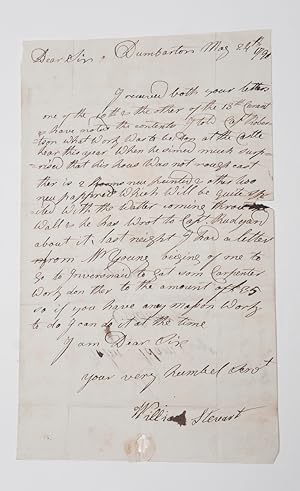 Dear Sir Dumbarton May 24th 1791
I received both your letters
one of the 10th & the other of the 13th Currant
& have noted the contents I told Capt Rober-
tson what Work was to do at the Castle
hear this year When he simed much surp-
rised that his hous was not roughcast
ther is 2 Rooms new painted & other two
new papered Which Will be quite
with the Watter coming throw
Wall & he has Wrot to Capt Rudyard
about it last night I had a letter
from Mr Young of one to
Go to Inversnaid to Get som Carpenter
Work don ther to the amount of £35
so if you have any mason Work
to do I can do it at the time
I am Dear Sir
your very humbel Servt
William Stewart